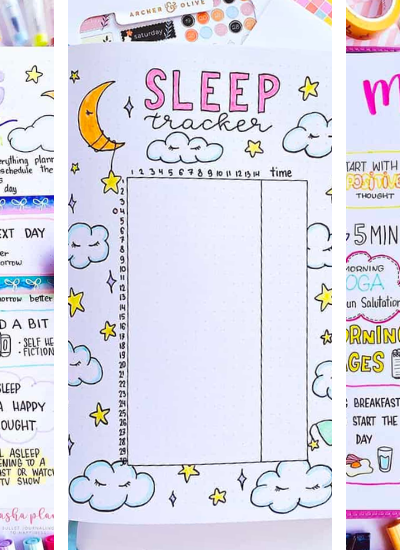 ARCHER & OLIVE
saturday
SLEEP
tracker
1 2 3 4 5 6 7 8 9 10 11 12 13 14 time
1
2
3
4
5
6
7
8
9
10
11
12
13
14
15
16
17
18
19
20
21
22
23
24
25
26
27
28
29
30
erything plann
schedule the
day
EXT DAY
er
orrow
morrow better
D A BIT
SELF HE
FICTION
SLEEP
A HAPPY
OUGHT
L ASLEEP
ENING TO A
AST OR WATCH
TV SHOW
asha plan
BULLET JOURNALING
TO HAPPINESS
m
START WITH
POSITIVE
THOUGHT
5 MIN
MORNING
YOGA
un Salutation
MORNING
AGES
BREAKFAST
START THE
DAY